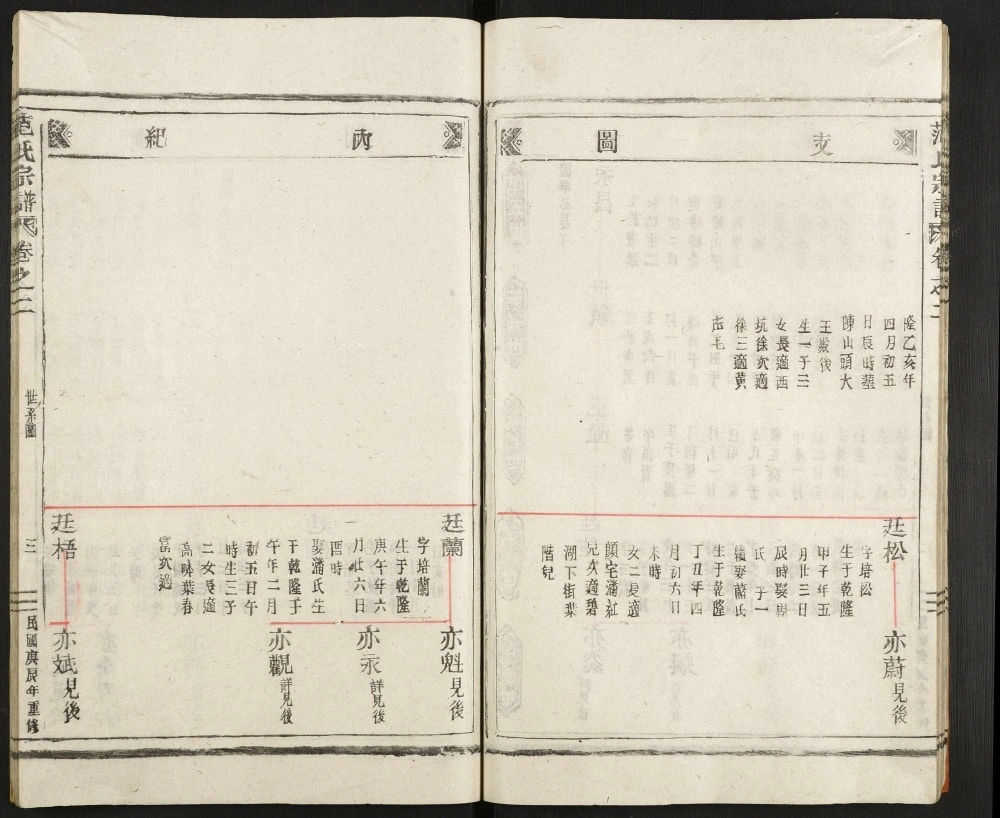 范氏宗譜 卷之二
支
圖
隆乙亥年
四月初五
日辰時塟
陳山頭大
王殿後
生一子三
女長適西
坑徐次適
徐三適黃
声毛
廷松
字培松
生于乾隆
甲子年五
月廿三日
辰時娶
氏 子一
續娶藍氏
生于乾隆
丁丑年四
月初六日
未時
女二長適
顏宅潘
兒次適碧
湖下街葉
階兒
亦蔚見後
内
紀
廷蘭
字培蘭
生于乾隆
庚午年六
月廿六日
酉時
娶潘氏生
于乾隆
午年二月
初五日午
時生三子
二女長適
高畈葉春
富次適
亦魁見後
亦永詳見後
亦觀詳見後
廷梧
亦斌見後
范氏宗譜 卷之二
世系圖
三
民國庚辰年重修